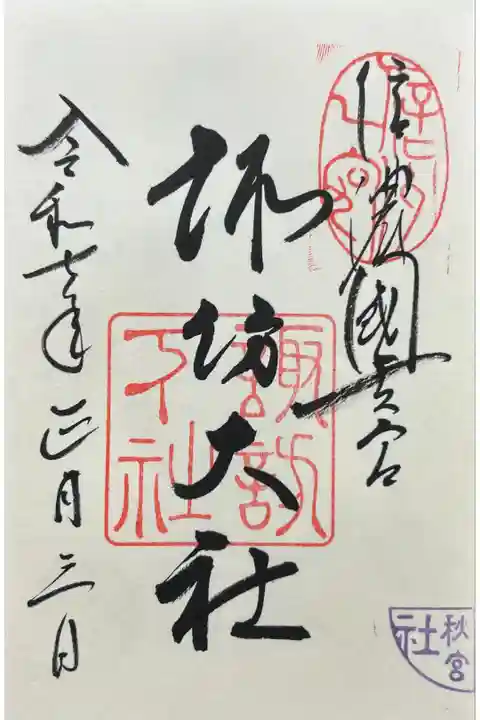 信濃國一之宮
諏訪大社
諏訪
下社
令和七年正月三日
秋宮
社